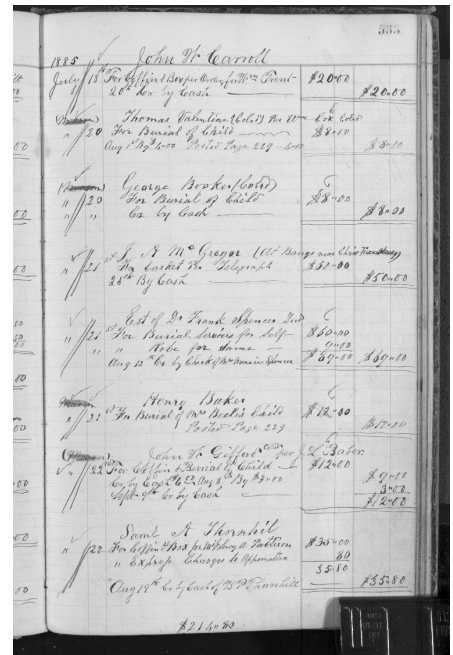 535
1885 John W Carroll
July 18th For Coffin & Box per Order for Wm $20.00
20th Cr by Cash $20.00
Thomas Valentine (Cold) Per Wm Cox Cold
" 20 For Burial of Child $8.00
Aug 1st By $4.00 Posted Page 229 - 4.00 $8.00
George Booker (Cold)
" 20 For Burial of Child $8.00
" Cr by Cash $8.00
J. A. McGregor
" 21st For Casket Per Telegraph $50.00
25th By Cash $50.00
Est of Dr Frank Spencer
" 21st For Burial Services for Self $60.00
" " Robe for Same 9.00
Aug 12th Cr by Check of Mrs Spencer $69.00 $69.00
Henry Baker
" 22 For Burial of Mrs Child $12.00
Posted Page 229 $12.00
John W. Gifford Cold per J. L. Baber
" 22nd For Coffin & Burial of Child $12.00
Cr by Cash Aug 8th By $3.00 $9.00
Sept 9th Cr by Cash 3.00
$12.00
Saml A Thornhill
" 22 For Coffin & Box $35.00
" Express Charges to Appomattox 80
35.80
Aug 19th Cr by Cash of Thornhill $35.80
$214.80